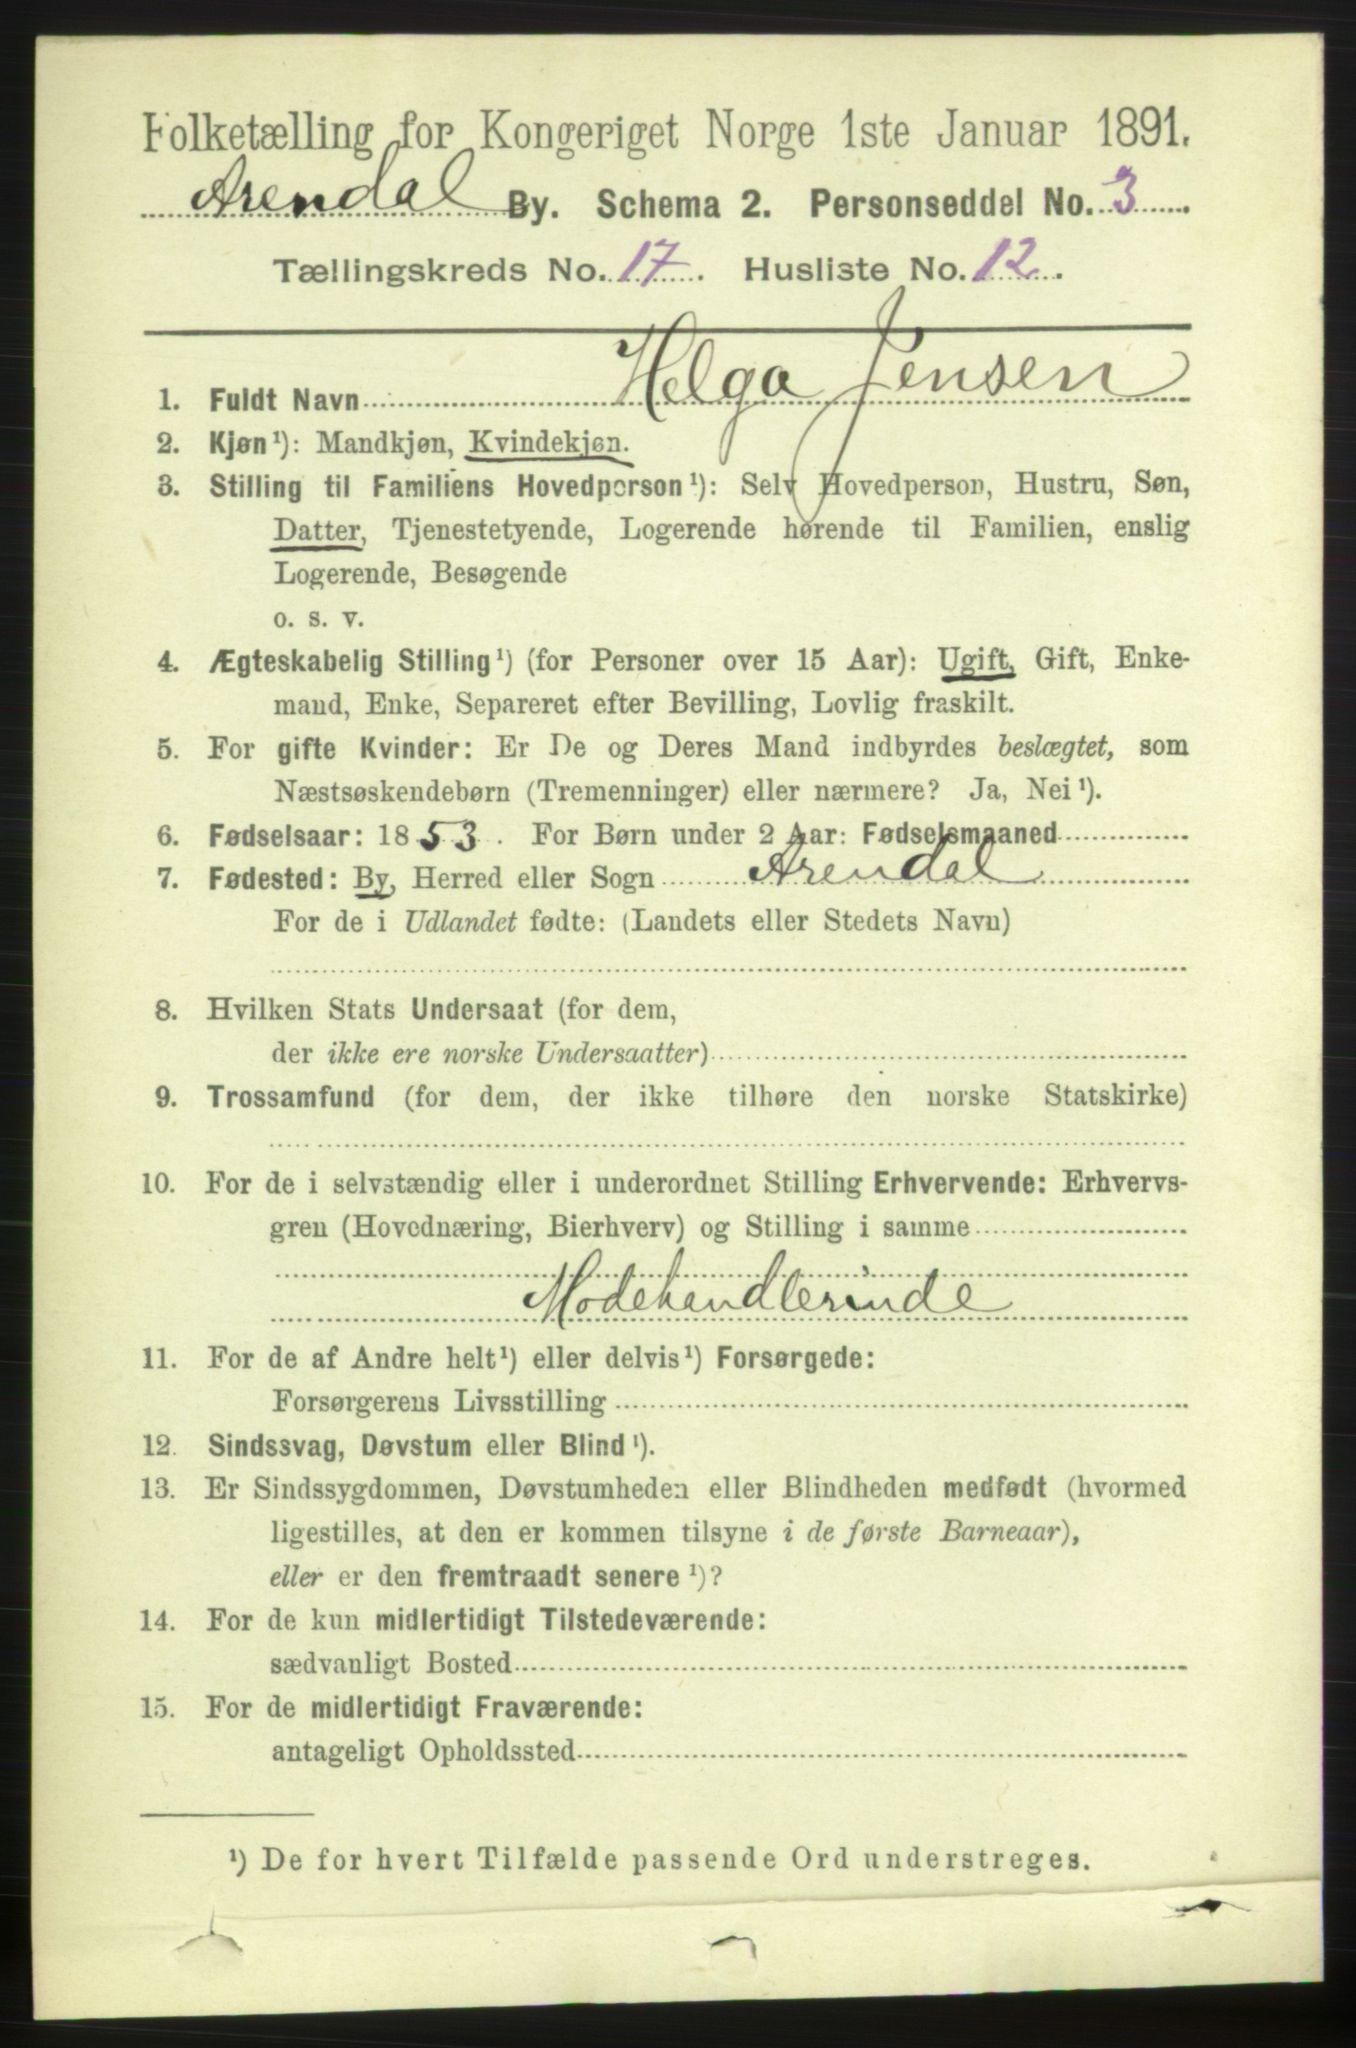 Folketælling for Kongeriget Norge 1ste Januar 1891.
Arendal By. Schema 2. Personseddel No. 3
Tællingskreds No. 17. Husliste No. 12.
1. Fuldt Navn Helga Jensen
2. Kjøn¹): Mandkjøn, Kvindekjøn.
3. Stilling til Familiens Hovedperson¹): Selv Hovedperson, Hustru, Søn,
Datter, Tjenestetyende, Logerende hørende til Familien, enslig
Logerende, Besøgende
o. s. v.
4. Ægteskabelig Stilling¹) (for Personer over 15 Aar): Ugift, Gift, Enke-
mand, Enke, Separeret efter Bevilling, Lovlig fraskilt.
5. For gifte Kvinder: Er De og Deres Mand indbyrdes beslægtet, som
Næstsøskendebørn (Tremenninger) eller nærmere? Ja, Nei¹).
6. Fødselsaar: 1853. For Børn under 2 Aar: Fødselsmaaned
7. Fødested: By, Herred eller Sogn Arendal
For de i Udlandet fødte: (Landets eller Stedets Navn)
8. Hvilken Stats Undersaat (for dem,
der ikke ere norske Undersaatter)
9. Trossamfund (for dem, der ikke tilhøre den norske Statskirke)
10. For de i selvstændig eller i underordnet Stilling Erhvervende: Erhvervs-
gren (Hovednæring, Bierhverv) og Stilling i samme
Modehandlerinde
11. For de af Andre helt¹) eller delvis¹) Forsørgede:
Forsørgerens Livsstilling
12. Sindssvag, Døvstum eller Blind¹).
13. Er Sindssygdommen, Døvstumheden eller Blindheden medfødt (hvormed
ligestilles, at den er kommen tilsyne i de første Barneaar),
eller er den fremtraadt senere¹)?
14. For de kun midlertidigt Tilstedeværende:
sædvanligt Bosted
15. For de midlertidigt Fraværende:
antageligt Opholdssted
¹) De for hvert Tilfælde passende Ord understreges.